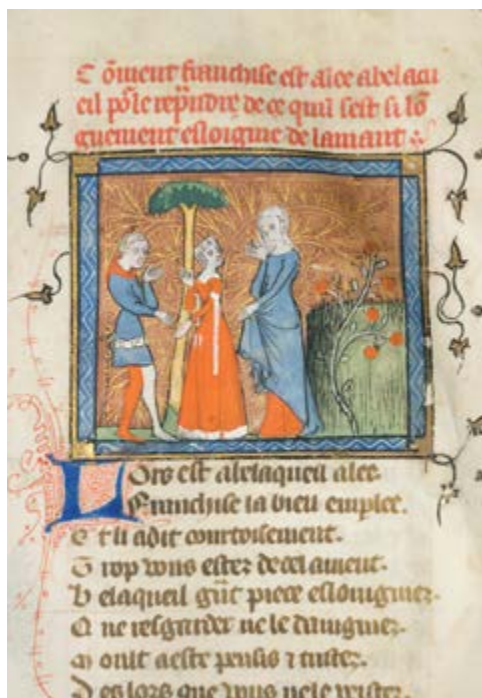 C õment franchise est alee a belacu
eil põ le rep̃ndre de ce quil sest si lõ
guement esloignie de lamant
Lors est a belaqueil alee.
Franchise la bien emplee.
E t li a dit courtoisement.
T rop vous estez de cel ament.
B elaqueil gñt piece esloigniez.
Q ne resgarder ne le daigniez.
M oult a este pensis ⁊ tristez.
D es lors que vous ne le veistez.